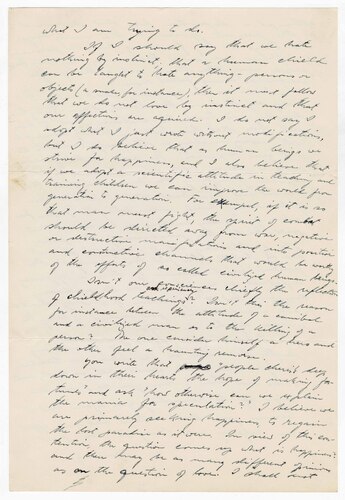 what I am trying to do.
If I should say that we hate
nothing by instinct, that a human child
can be taught to hate anything - persons or
objects (a snake, for instance), then it must follow
that we do not love by instinct and that
our affections are acquired. I do not say I
adopt what I just wrote without modifications,
but I do believe that as human beings we
strive for happiness, and I also believe that
if we adopt a scientific attitude in teaching and
training children we can improve the world from
generation to generation. For example, if it is so
that man must fight, the spirit of combat
should be directed away from war, negative
or destructive manifestations and into positive
and constructive channels that would be worthy
of the efforts of so called civilized human beings.
Isn't our conscience chiefly the reflection
of childhood teachings? Isn't this the reason
for instance between the attitude of a cannibal
and a civilized man as to the killing of a
person? The one considers himself a hero and
the other feels a haunting remorse.
You write that people cherish deep
down in their hearts the hope of making for
tunes and ask "how otherwise can we explain
the mania for speculation?" I believe we
are primarily seeking happiness, to regain
the lost paradise as it were. In view of this con-
tention the question comes up what is happiness
and there may be as many different opinions
as on the question of love. I shall not